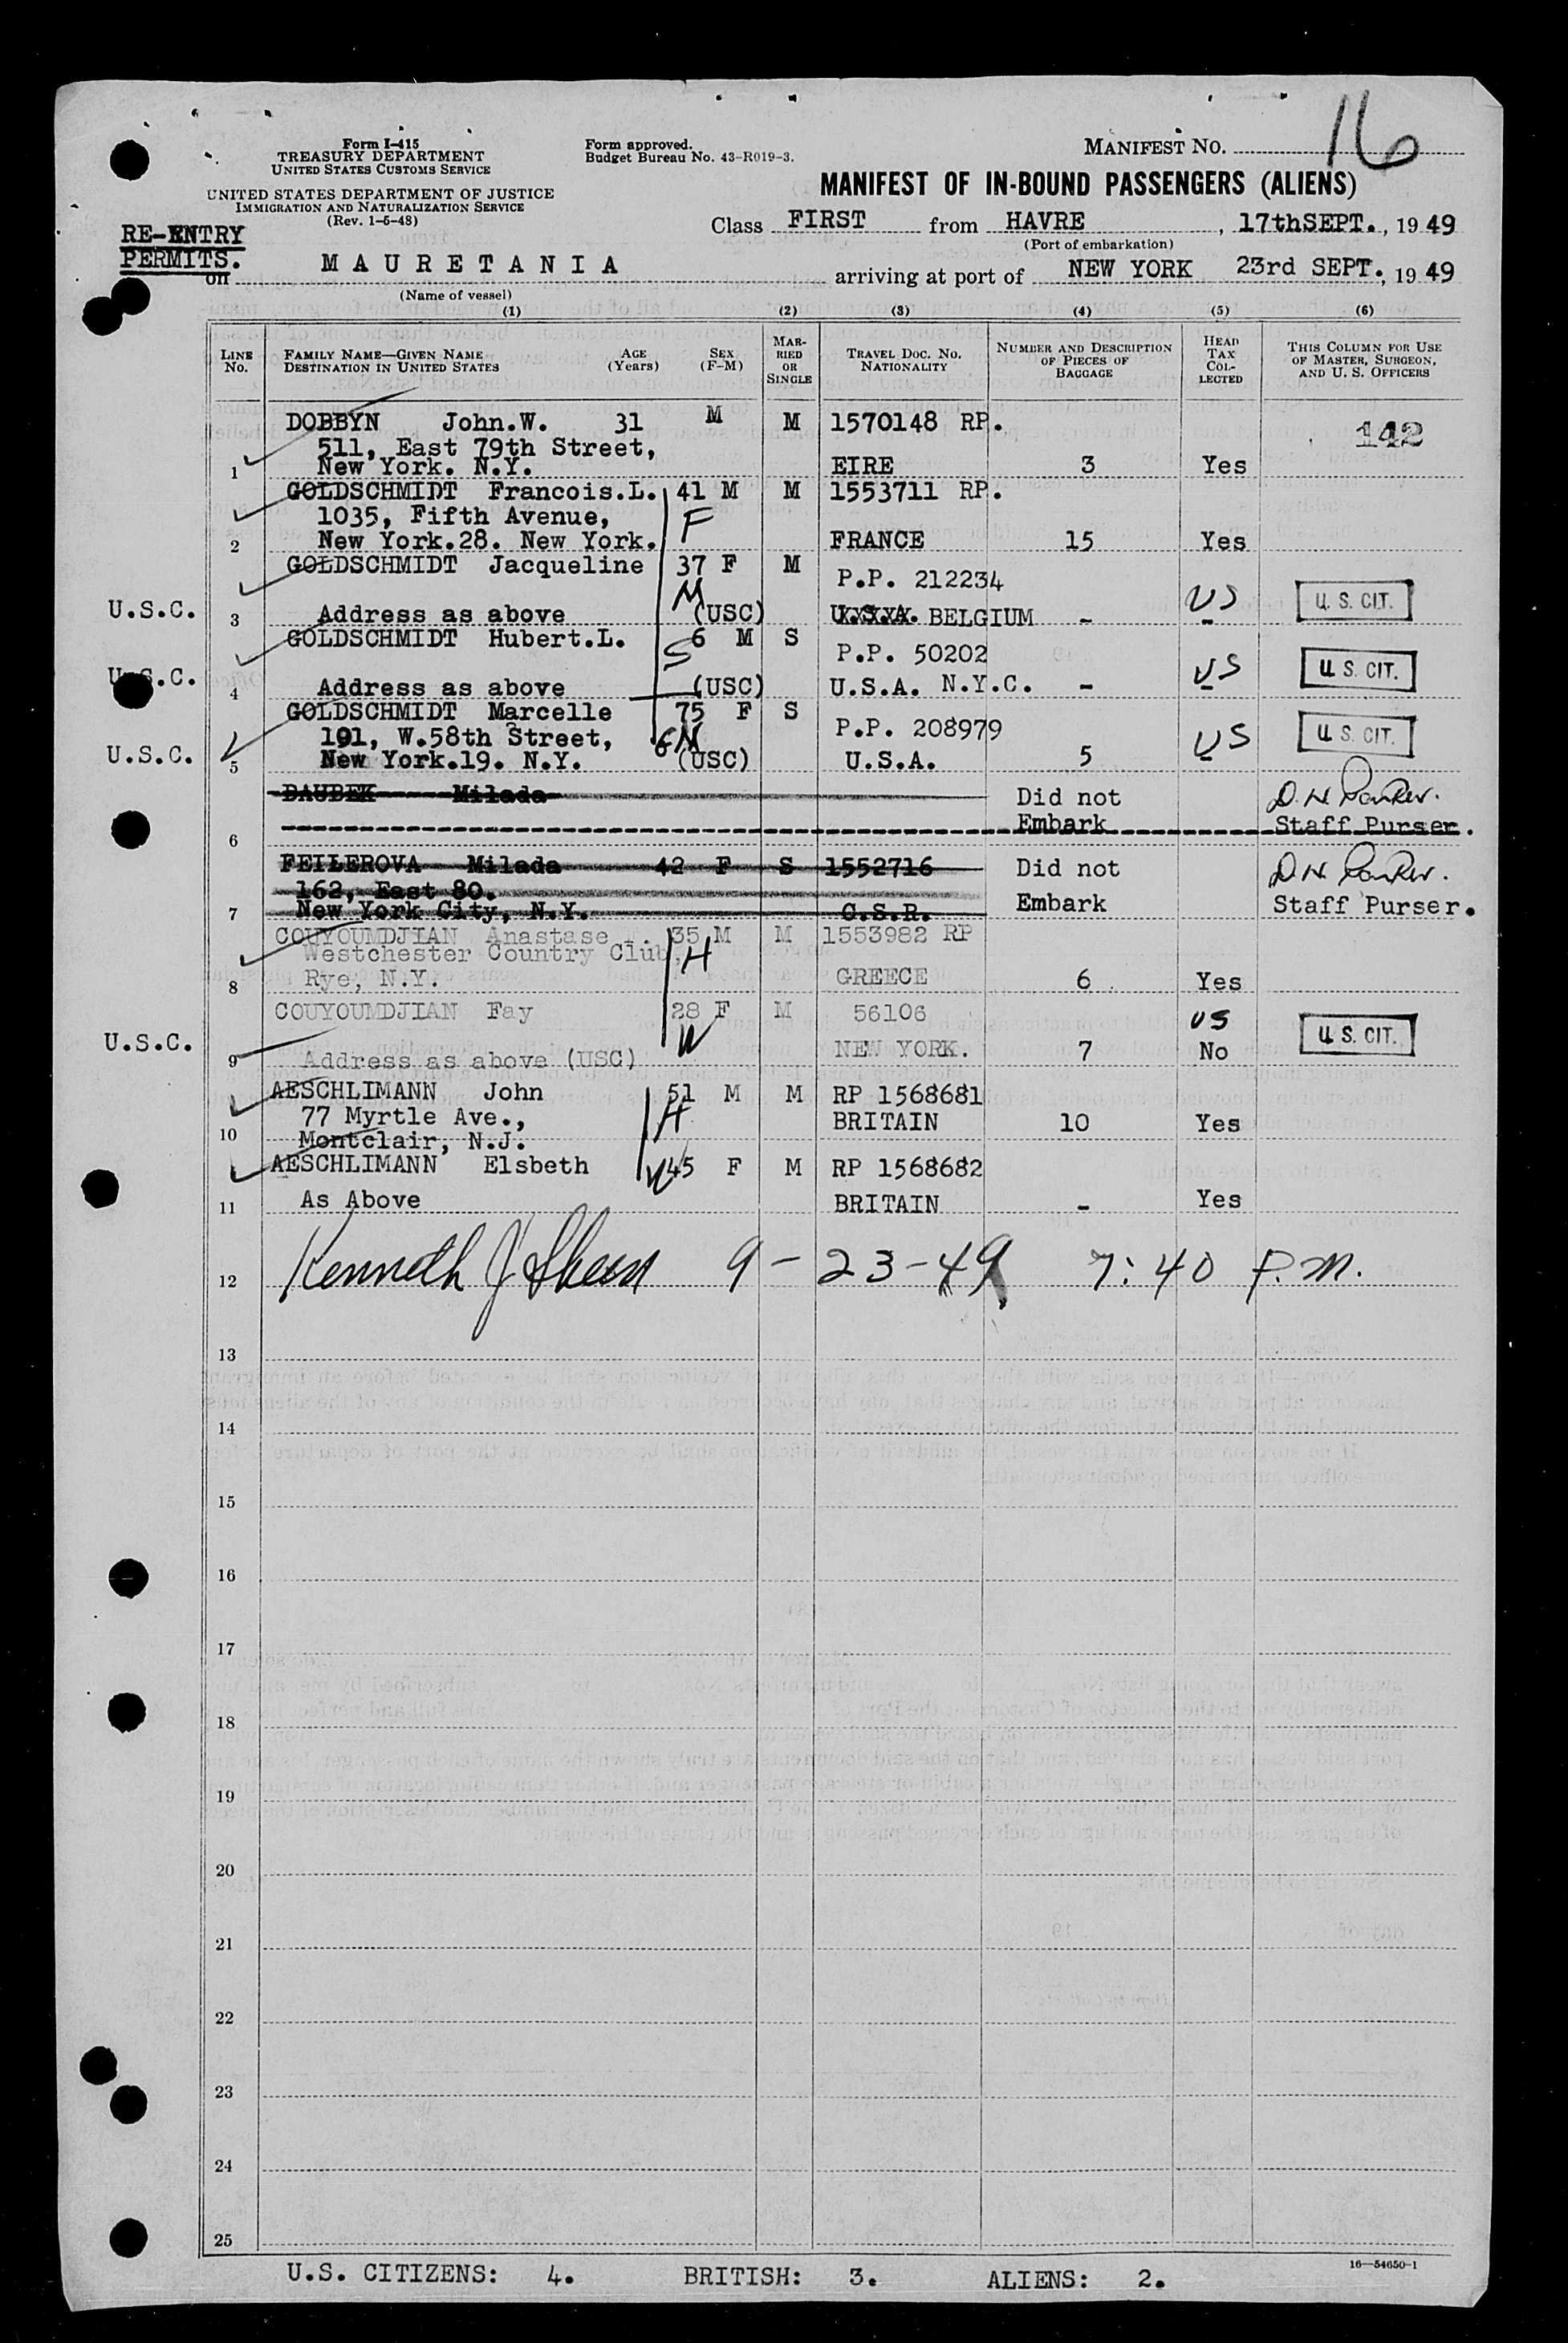 Form I-415
TREASURY DEPARTMENT
UNITED STATES CUSTOMS SERVICE
UNITED STATES DEPARTMENT OF JUSTICE
IMMIGRATION AND NATURALIZATION SERVICE
(Rev. 1-6-48)
Form approved.
Budget Bureau No. 43-R019-3.
MANIFEST NO. 16
MANIFEST OF IN-BOUND PASSENGERS (ALIENS)
Class FIRST from HAVRE, 17thSEPT., 1949
(Port of embarkation)
RE-ENTRY
PERMITS.
on MAURETANIA arriving at port of NEW YORK 23rd SEPT., 1949
(Name of vessel)
(1) (2) (3) (4) (5) (6)
LINE No. FAMILY NAME—GIVEN NAME DESTINATION IN UNITED STATES AGE (Years) SEX (F-M) MARRIED OR SINGLE TRAVEL DOC. NO. NATIONALITY NUMBER AND DESCRIPTION OF PIECES OF BAGGAGE HEAD TAX COLLECTED THIS COLUMN FOR USE OF MASTER, SURGEON, AND U. S. OFFICERS
DOBBYN John.W. 31 M M 1570148 RP. 142
511, East 79th Street,
1 New York. N.Y. EIRE 3 Yes
GOLDSCHMIDT Francois.L. 41 M M 1553711 RP.
1035, Fifth Avenue, F
2 New York.28. New York. FRANCE 15 Yes
GOLDSCHMIDT Jacqueline 37 F M P.P. 212234
M
U.S.C. 3 Address as above (USC) U.S.A. BELGIUM - US U. S. CIT.
GOLDSCHMIDT Hubert.L. 6 M S P.P. 50202
S
U.S.C. 4 Address as above (USC) U.S.A. N.Y.C. - US U. S. CIT.
GOLDSCHMIDT Marcelle 75 F S P.P. 208979
101, W.58th Street, GM
U.S.C. 5 New York.19. N.Y. (USC) U.S.A. 5 US U. S. CIT.
DAUBEK Milada Did not D. N. Parker.
6 Embark Staff Purser.
FEILEROVA Milada 42 F S 1552716 Did not D. N. Parker.
162, East 80.
7 New York City, N.Y. C.S.R. Embark Staff Purser.
COUYOUMDJIAN Anastase 35 M M 1553982 RP
Westchester Country Club, H
8 Rye, N.Y. GREECE 6 Yes
COUYOUMDJIAN Fay 28 F M 56106 US
W
U.S.C. 9 Address as above (USC) NEW YORK. 7 No U. S. CIT.
AESCHLIMANN John 51 M M RP 1568681
77 Myrtle Ave., H BRITAIN 10 Yes
10 Montclair, N.J.
AESCHLIMANN Elsbeth W 45 F M RP 1568682
11 As Above BRITAIN - Yes
12 Kenneth J 9-23-49 7:40 P.M.
13
14
15
16
17
18
19
20
21
22
23
24
25
16—54650-1
U.S. CITIZENS: 4. BRITISH: 3. ALIENS: 2.